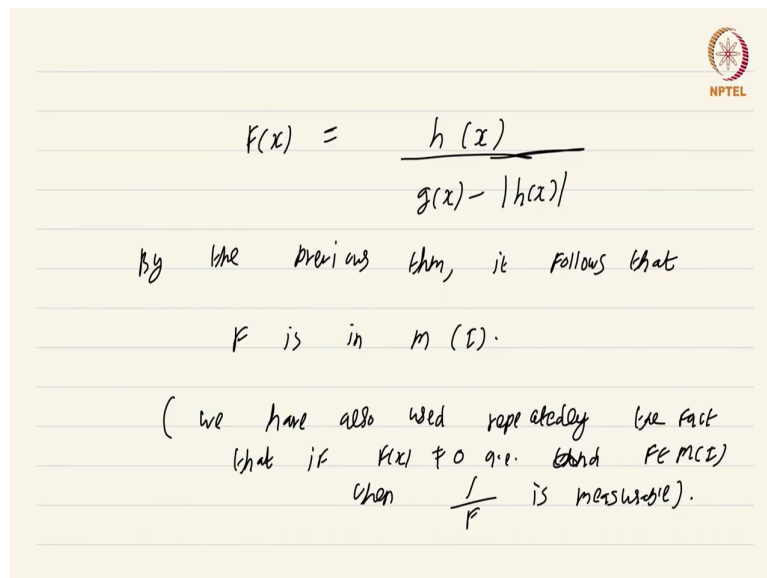 NPTEL
F(x) = h(x)
g(x) - |h(x)|
By the previous thm, it follows that
F is in M(I).
(we have also used repeatedly the fact
that if F(x) ≠ 0 a.e. and F ∈ M(I)
then 1/F is measurable).